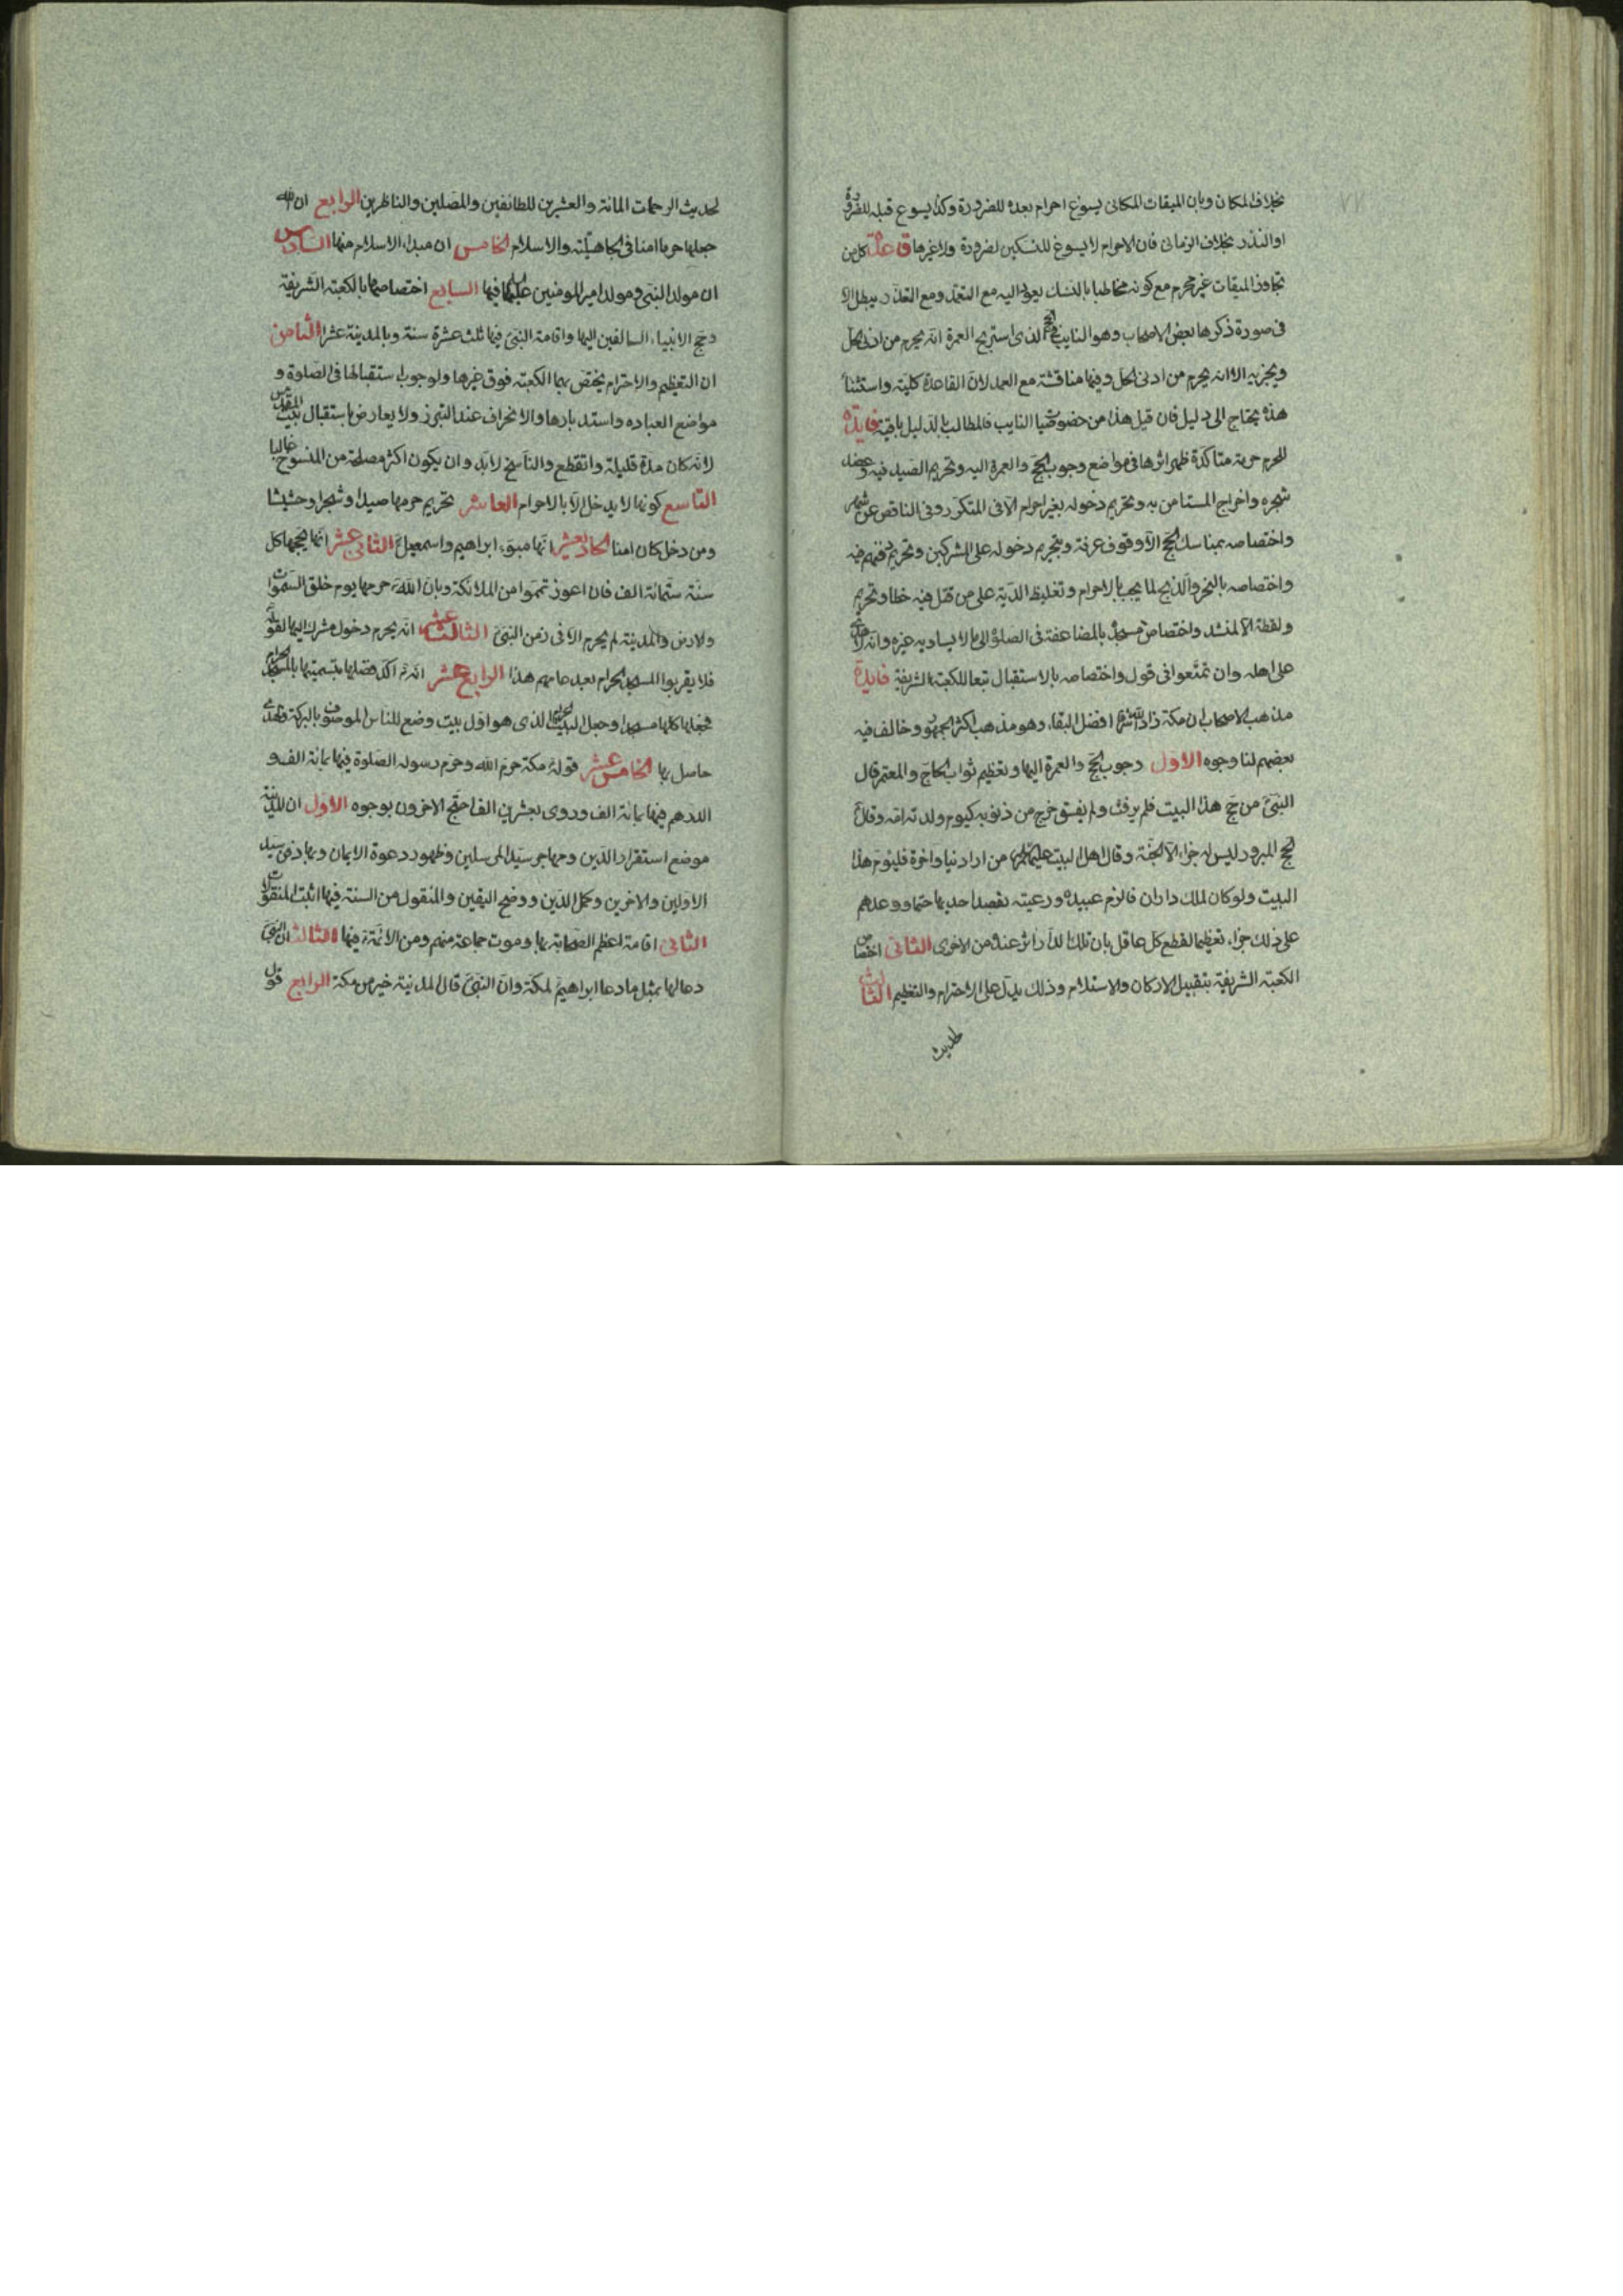 بخلاف المكان وبان الميقات المكانى يسوغ احرام بعده للضرورة وكذا يسوغ قبله للضرورة
او النذر بخلاف الزمانى فان الاحرام لا يسوغ للنسكين لضرورة ولا غيرها قاعدة كل من
تجاوز الميقات غير محرم مع كونه مخاطبا بالنسك يعود اليه مع التعمد ومع التعذر يبطل الا
فى صورة ذكرها بعض الاصحاب وهو النايب فى الحج الذى استريح العمرة انه يحرم من ادنى الحل
ويجزيه الا انه يحرم من ادنى الحل وفيها مناقشة مع العمد لان القاعدة كلية واستثناء
هذه يحتاج الى دليل فان قيل هذا من خصوصيات النايب فالمطالب بالدليل باقية فايدة
للحرم حرمة متاكدة ظهر اثرها فى مواضع وجوب الحج والعمرة اليه وتحريم الصيد فيه وعضد
شجره واخراج المستامن به وتحريم دخوله بغير احرام الا فى المتكرر وفى الناقص عن شهر
واختصاصه بمناسك الحج الا وقوف عرفة وبتحريم دخوله على المشركين وتحريم دفنهم فيه
واختصاصه بالنحر والذبح لما يجب بالاحرام وتغليظ الدية على من قتل فيه خطا وتحريم
ولقطة الا لمنشد واختصاص مسجده بالمضاعفة فى الصلوة الى ما لا يساويه غيره وانه لا
على اهله وان تمتعوا فى قول واختصاصه بالاستقبال تبعا للكعبة الشريفة فايدة
مذهب الاصحاب ان مكة زاد الله شرفها افضل البقاع وهو مذهب اكثر الجمهور وخالف فيه
بعضهم لنا وجوه الاول وجوب الحج والعمرة اليها وتعظيم ثواب الحاج والمعتمر قال
النبى من حج هذا البيت فلم يرفث ولم يفسق خرج من ذنوبه كيوم ولدته امه وقال
الحج المبرور ليس له جزاء الا الجنة وقال اهل البيت عليهم السلام من اراد دنيا واخرة فليؤم هذا
البيت ولو كان لملك داران فالزم عبيده ورعيته بقصد احديهما حتما ووعدهم
على ذلك جزاء تعظيما لقطع كل عاقل بان تلك الدار اثر عنده من الاخرى الثانى اختصاص
الكعبة الشريفة بتقبيل الاركان والاستلام وذلك يدل على الاحترام والتعظيم الثالث
لحديث
لحديث الرحمات المائة والعشرين للطائفين والمصلين والناظرين الرابع ان الله
جعلها حرما امنا فى الجاهلية والاسلام الخامس ان مبداء الاسلام منها السادس
ان مولد النبى ومولد امير المومنين عليهما السلام فيها السابع اختصاصها بالكعبة الشريفة
وحج الانبياء السالفين اليها واقامة النبى فيها ثلث عشرة سنة وبالمدينة عشرا الثامن
ان التعظيم والاحترام يختص بهما الكعبة فوق غيرها ولوجوب استقبالها فى الصلوة و
مواضع العباده واستدبارها والانحراف عند التبرز ولا يعارض باستقبال بيت المقدس
لانه كان مدة قليلة وانقطع والناسخ لابد وان يكون اكثر مصلحة من المنسوخ غالبا
التاسع كونها لا يدخل الا بالاحرام العاشر تحريم حرمها صيدا وشجرا وحشيشا
ومن دخل كان امنا الحاديعشر انها مبوء ابراهيم واسمعيل الثانى عشر انها يحجها كل
سنة ستمائة الف فان اعوز تمموا من الملائكة وبان الله حرمها يوم خلق السموات
والارض والمدينة لم يحرم الا فى زمن النبى الثالث عشر انه يحرم دخول مشرك اليها لقوله
فلا يقربوا المسجد الحرام بعد عامهم هذا الرابع عشر انه اكد فضلها بتسميتها بالمسجد الحرام
فجعلها كلها مسجدا وجعل البيت الحرام الذى هو اول بيت وضع للناس الموصوف بالبركة والهدى
حاصل بها الخامس عشر قوله مكة حرم الله وحرم رسوله الصلوة فيها بمائة الف و
الدرهم فيها بمائة الف وروى بعشرين الفا احتج الاخرون بوجوه الاول ان المدينة
موضع استقرار الدين ومهاجر سيد المرسلين وظهور دعوة الايمان وبها دفن سيد
الاولين والاخرين وكمل الدين ووضح اليقين والمنقول من السنة فيها اثبت المنقولات
الثانى اقامة اعظم الصحابة بها وموت جماعة منهم ومن الائمة فيها الثالث ان النبى
دعا لها بمثل ما دعا ابراهيم لمكة وان النبى قال المدينة خير من مكة الرابع قول